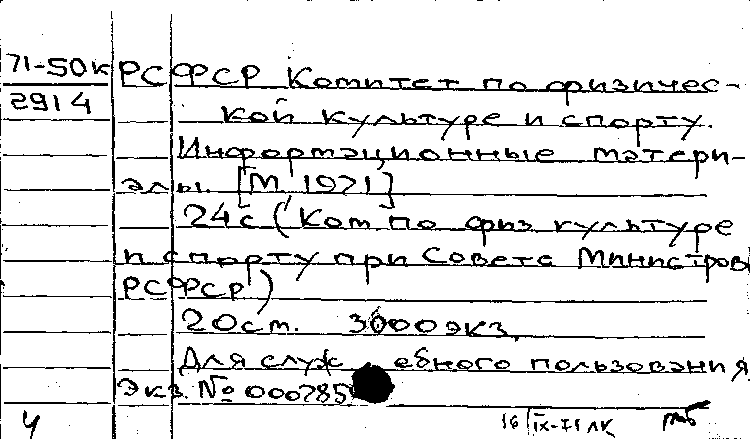 71-50к РСФСР Комитет по физичес-
2914 кой культуре и спорту.
Информационные матери-
алы. [М, 1971]
24с (Ком. по физ культуре
и спорту при Совета Министров
РСФСР)
20см. 3000экз.
Для служ ебного пользования
Экз. № 000285
4 16/IX-71 ЛК